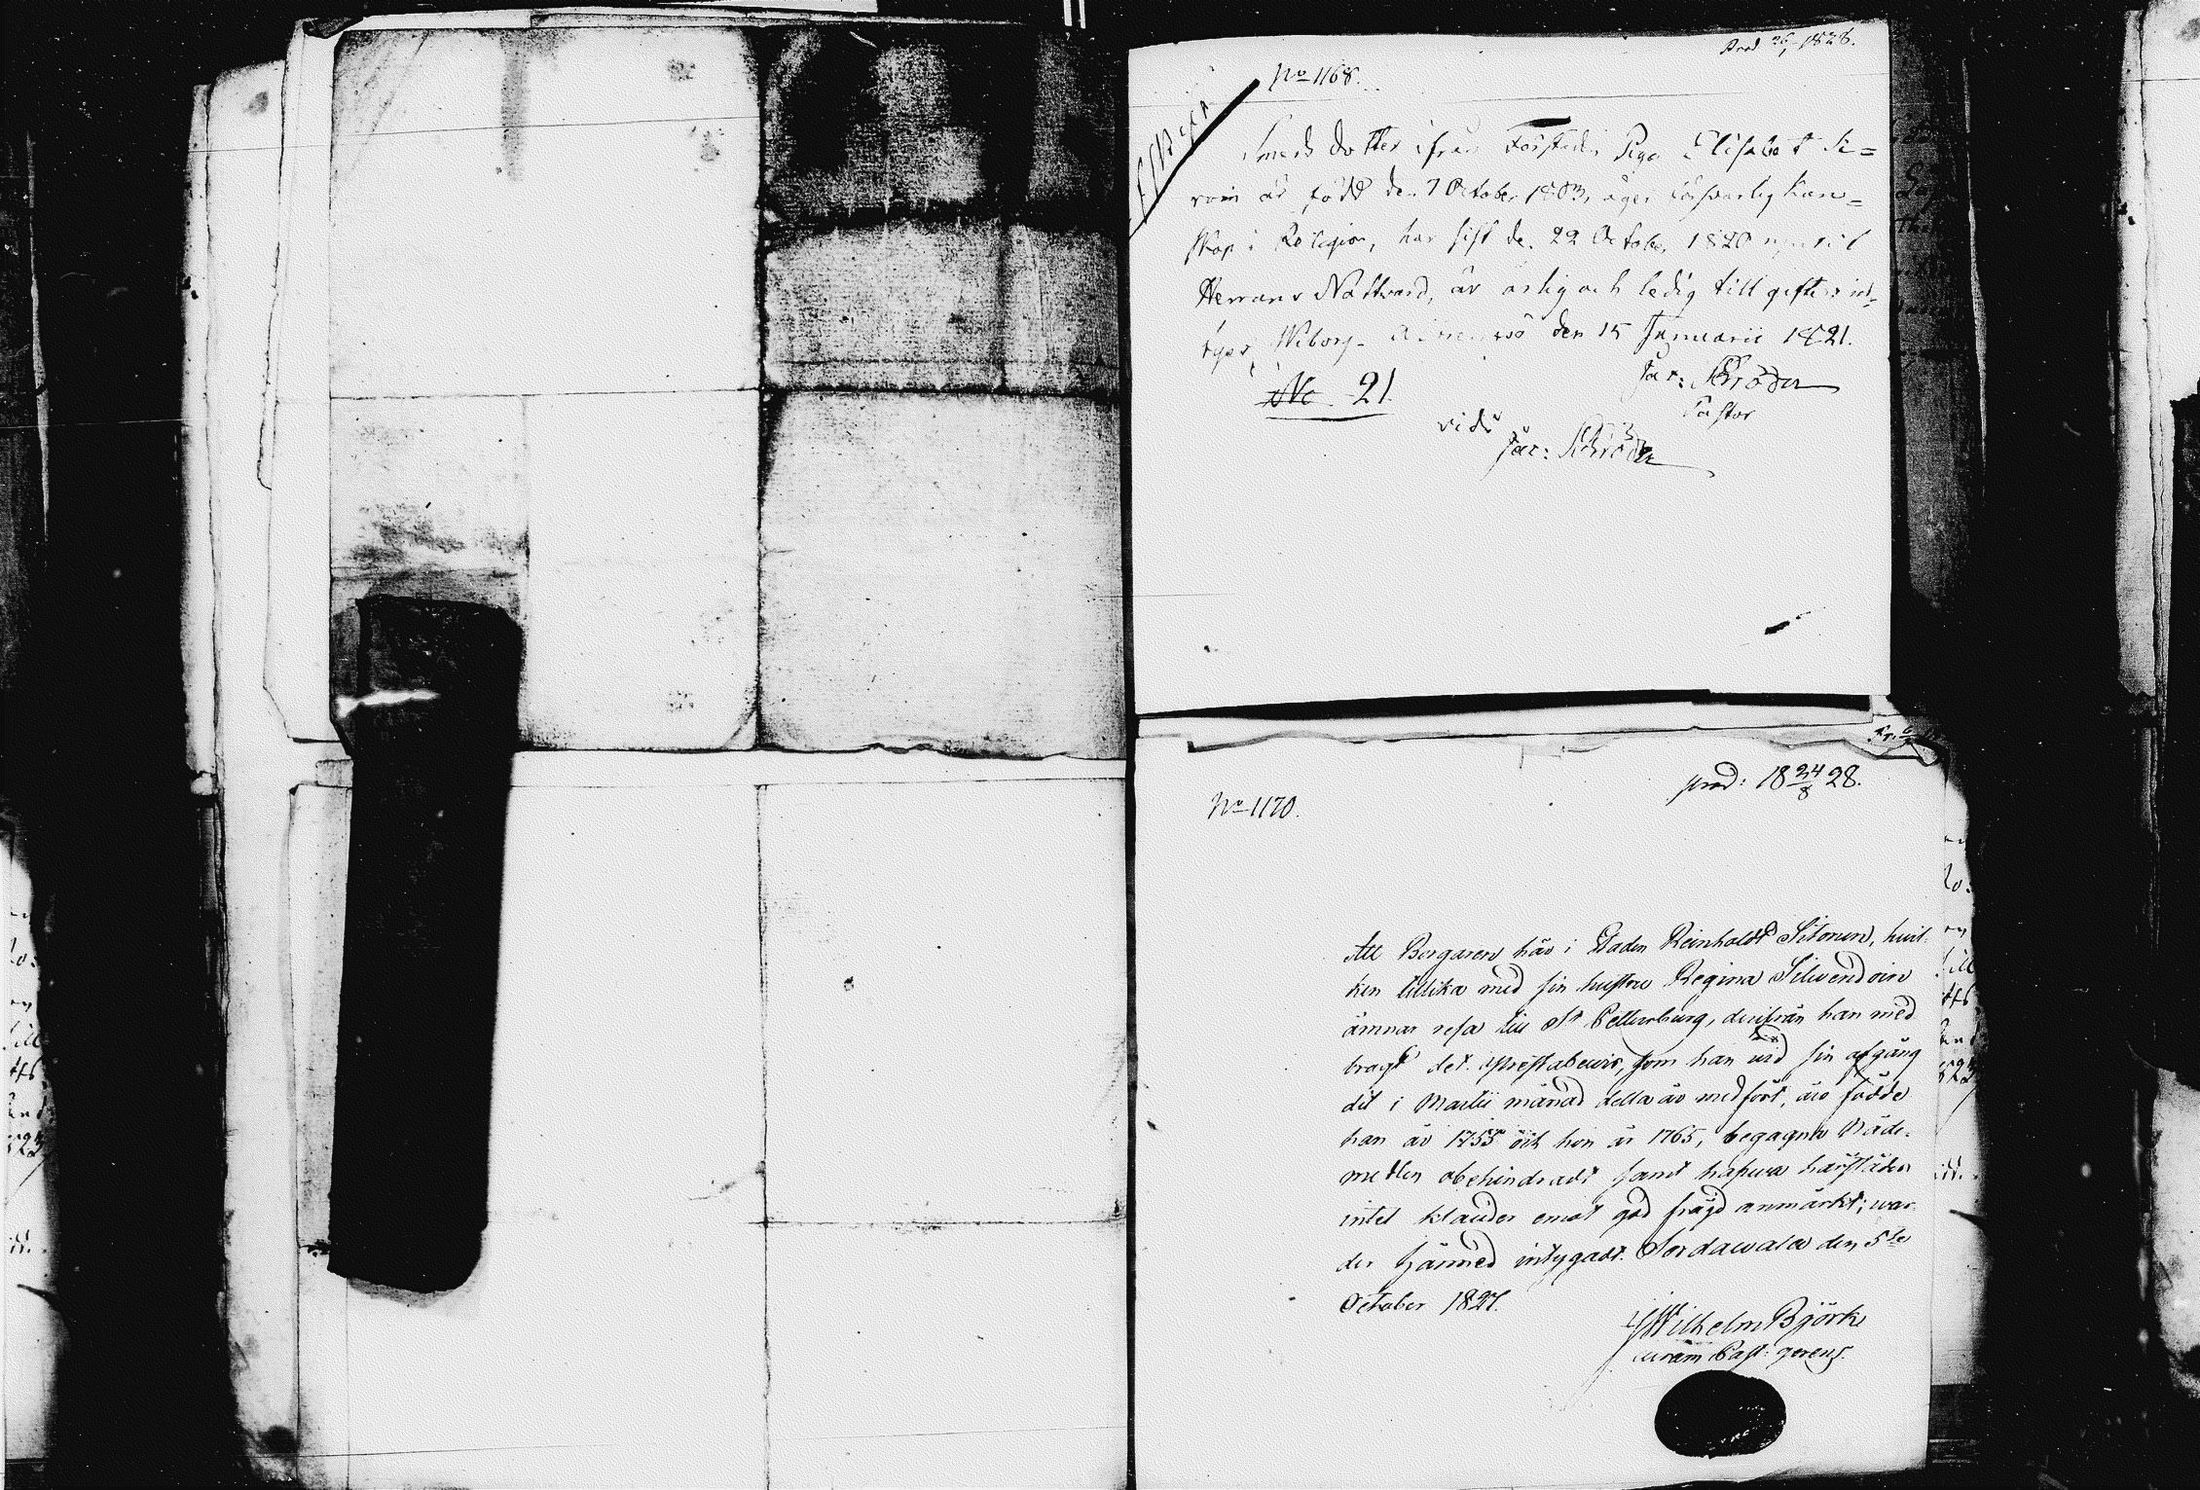 Prod 26/1 1828.
No 1168.
Smeds dotter ifrån Förstaden Pigan Elisabet Si=
röin är född den 7 October 1803, äger försvarlig Kun=
skap i Religion, har sist de. 22 October 1820 njutit
Herrans Nattvard, är ärlig och ledig till gifte; in=
tygar, Wiborg den 15 Januarii 1821.
Jac: Schröder
Pastor
No 21.
vidi
Jac: Schröder
prod: 18 24/8 28.
No 1170.
Att Borgaren här i Staden Reinholdt Sitonen, hwil-
ken tillika med sin hustru Regina Silwendoin
ämnar resa till St Pettersburg, derifrån han med
bragt det Prestabewis, som han wid sin afgång
dit i Martii månad detta år medfört, äro födde
han år 1755 och hon år 1765, begagna Nåde-
medlen obehindradt samt hafwa härstädes
intet klander emot god frägd anmärkt; war-
der härmed intygadt. Sordawala den 5te
October 1827.
Wilhelm Björk
curam Past: gerens.